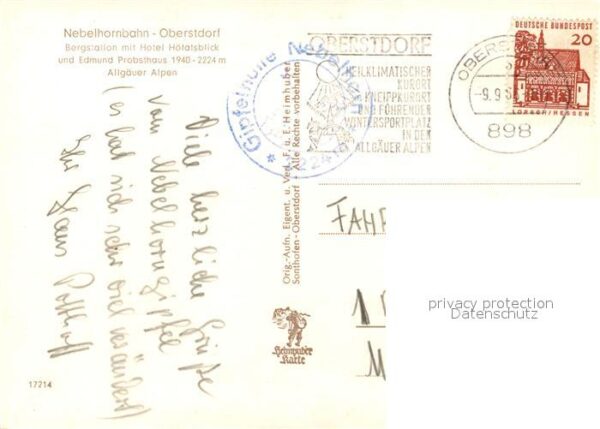 Nebelhornbahn - Oberstdorf
Bergstation mit Hotel Höfatsblick
und Edmund Probsthaus 1940 - 2224 m
Allgäuer Alpen
Viele herzliche Grüße
vom Nebelhorngipfel
(er hat sich sehr viel verändert)
Ihr
17214
Orig.-Aufn. Eigent. u. Verl. F. u. E. Heimhuber
Sonthofen-Oberstdorf Alle Rechte vorbehalten
Heimhuber
Karte
Gipfelhütte Nebelhorn
2224
OBERSTDORF
HEILKLIMATISCHER
KURORT
KNEIPPKURORT
UND FÜHRENDER
WINTERSPORTPLATZ
IN DEN
ALLGÄUER ALPEN
OBERST
-9.9.
898
DEUTSCHE BUNDESPOST
20
LORSCH/HESSEN
FAH
1
M
privacy protection
Datenschutz